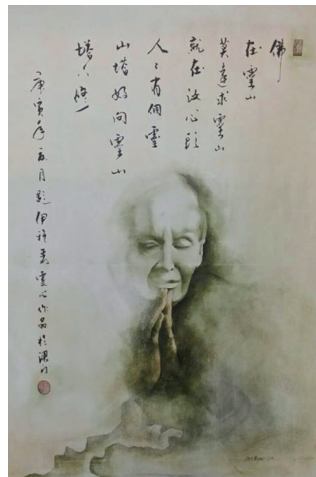 佛
在靈山
莫遠求靈山
就在汝心頭
人人有個靈
山塔好向靈山
塔下修
庚寅年五月題
作品於